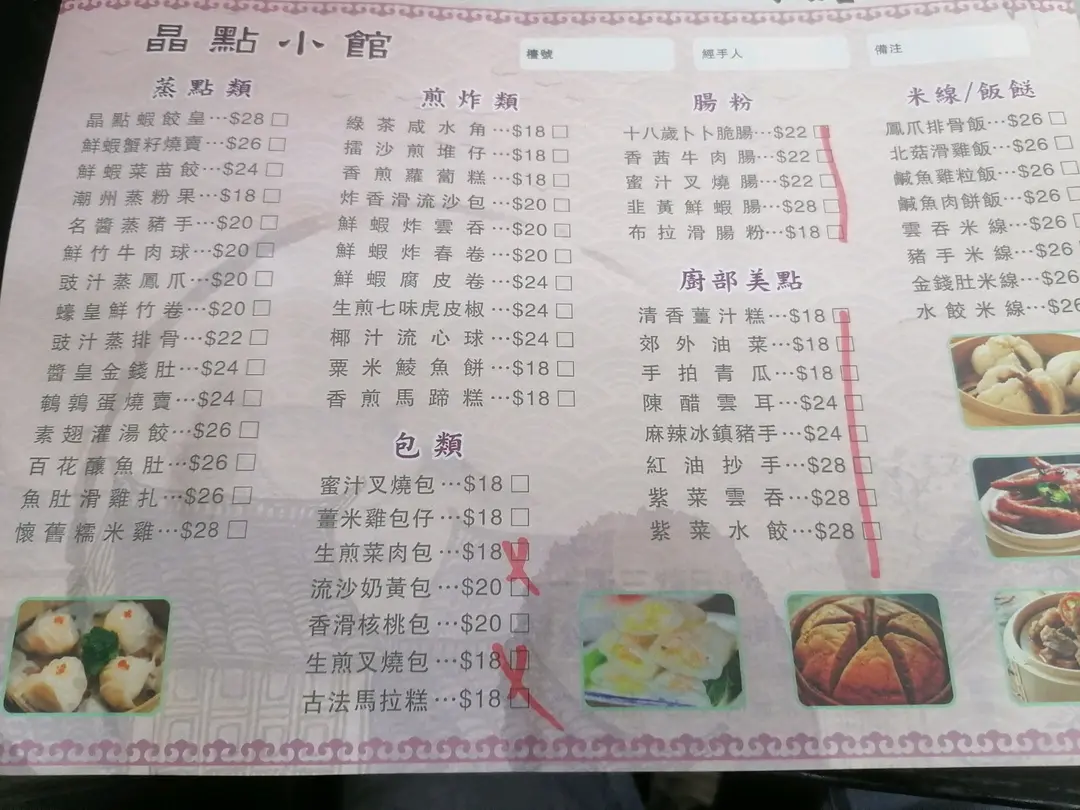 晶點小館
檯號
經手人
備注
蒸點類
晶點蝦餃皇…$28
鮮蝦蟹籽燒賣…$26
鮮蝦菜苗餃…$24
潮州蒸粉果…$18
名醬蒸豬手…$20
鮮竹牛肉球…$20
豉汁蒸鳳爪…$20
蠔皇鮮竹卷…$20
豉汁蒸排骨…$22
醬皇金錢肚…$24
鵪鶉蛋燒賣…$24
素翅灌湯餃…$26
百花釀魚肚…$26
魚肚滑雞扎…$26
懷舊糯米雞…$28
煎炸類
綠茶咸水角…$18
擂沙煎堆仔…$18
香煎蘿蔔糕…$18
炸香滑流沙包…$20
鮮蝦炸雲吞…$20
鮮蝦炸春卷…$20
鮮蝦腐皮卷…$24
生煎七味虎皮椒…$24
椰汁流心球…$24
粟米鯪魚餅…$18
香煎馬蹄糕…$18
包類
蜜汁叉燒包…$18
薑米雞包仔…$18
生煎菜肉包…$18
流沙奶黃包…$20
香滑核桃包…$20
生煎叉燒包…$18
古法馬拉糕…$18
腸粉
十八歲卜卜脆腸…$22
香茜牛肉腸…$22
蜜汁叉燒腸…$22
韭黃鮮蝦腸…$28
布拉滑腸粉…$18
廚部美點
清香薑汁糕…$18
郊外油菜…$18
手拍青瓜…$18
陳醋雲耳…$24
麻辣冰鎮豬手…$24
紅油抄手…$28
紫菜雲吞…$28
紫菜水餃…$28
米線/飯餸
鳳爪排骨飯…$26
北菇滑雞飯…$26
鹹魚雞粒飯…$26
鹹魚肉餅飯…$26
雲吞米線…$26
豬手米線…$26
金錢肚米線…$26
水餃米線…$26